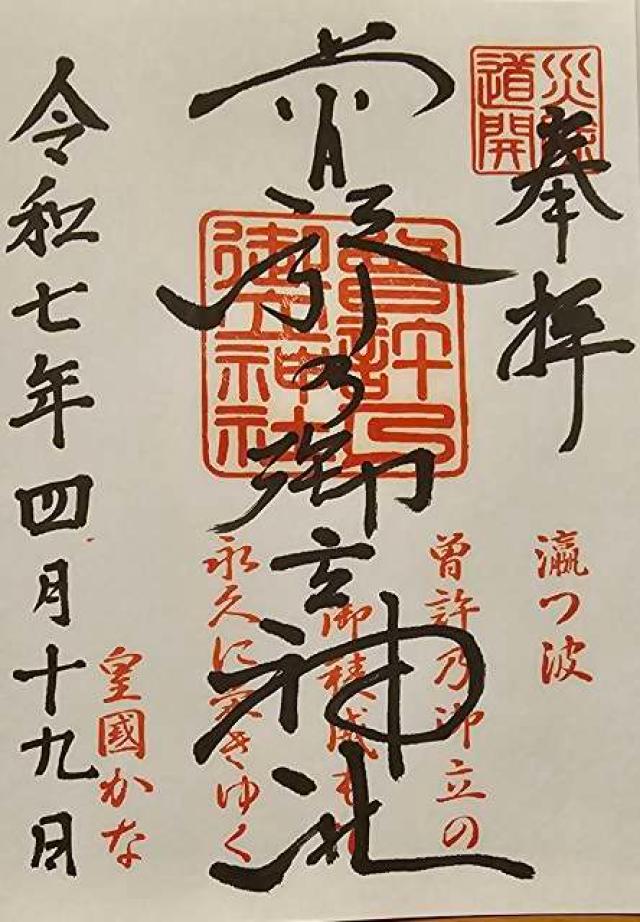 災除
道開
奉拝
瀛つ波
曾許乃御立の
御稜威も
永久に きゆく
皇國かな
曾許乃御立神社
曾許乃
御立神社
令和七年四月十九日